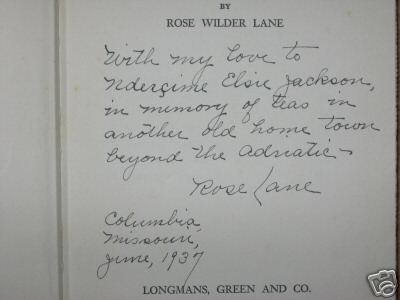 BY
ROSE WILDER LANE
With my love to
Nderçime Elsie Jackson,
in memory of teas in
another old home town
beyond the Adriatic–
Rose Lane
Columbia,
Missouri,
June, 1937
LONGMANS, GREEN AND CO.
ebay